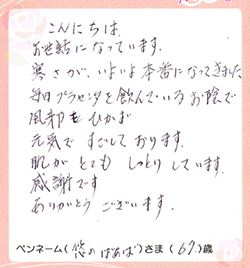 こんにちは、
お世話になっています。
寒さが、いよいよ本番になってきました
毎日プラセンタを飲んでいるお陰で
風邪もひかず
元気ですごしております。
肌がとてもしっとりしています。
感謝です
ありがとうございます。
ペンネーム(悠のばあば)さま(67)歳